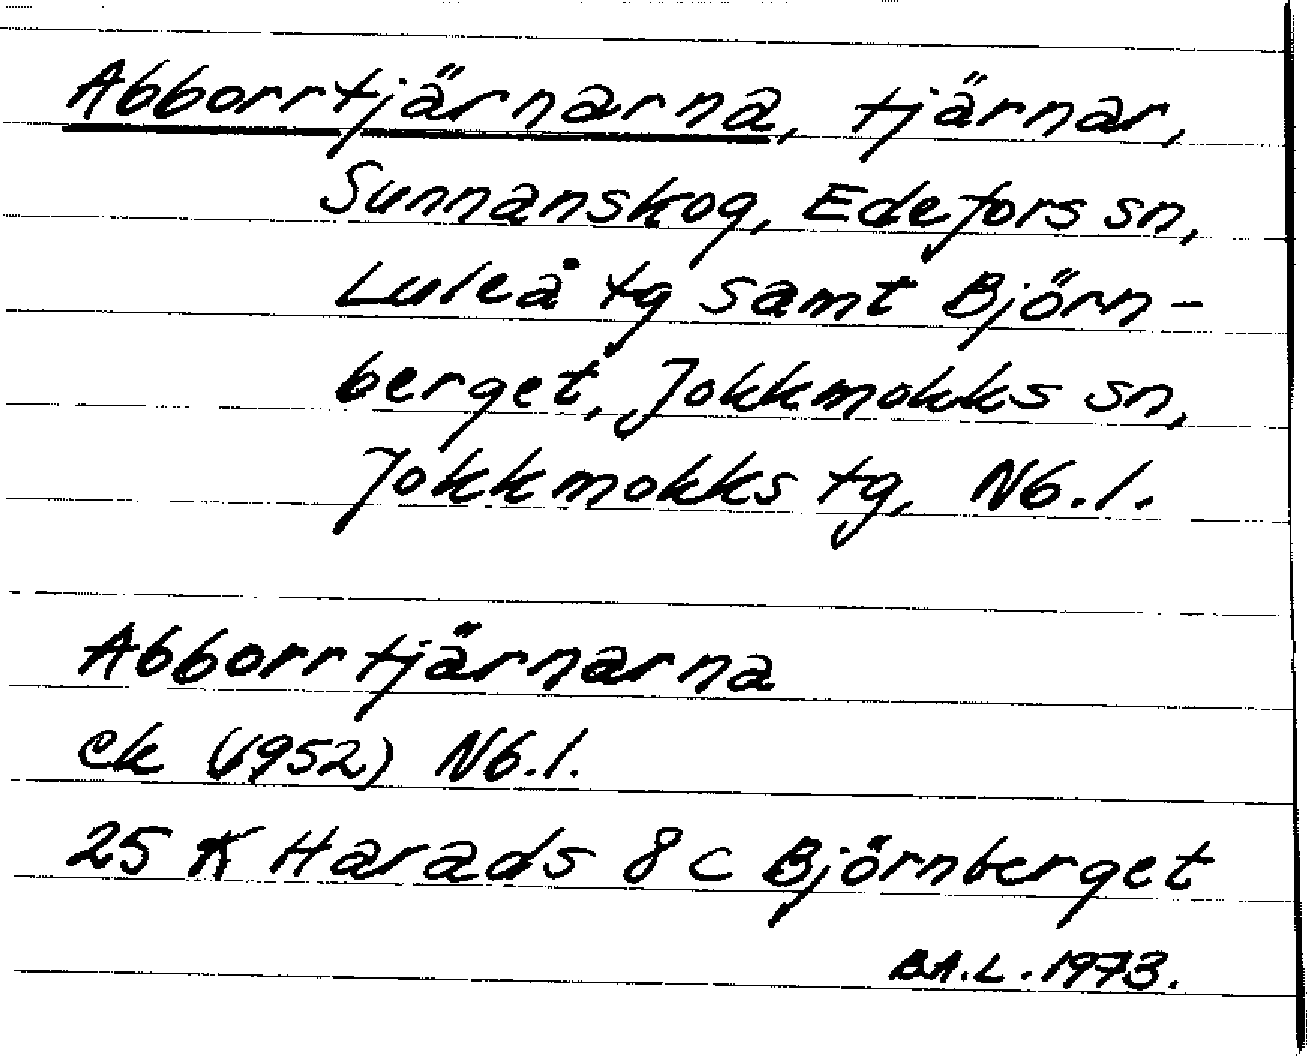 Abborrtjärnarna, tjärnar,
Sunnanskog, Edefors sn,
Luleå tg samt Björn-
berget, Jokkmokks sn,
Jokkmokks tg, Nb.l.
Abborrtjärnarna
ek (1952) Nb.l.
25 K Harads 8 c Björnberget
B.A.L. 1973.